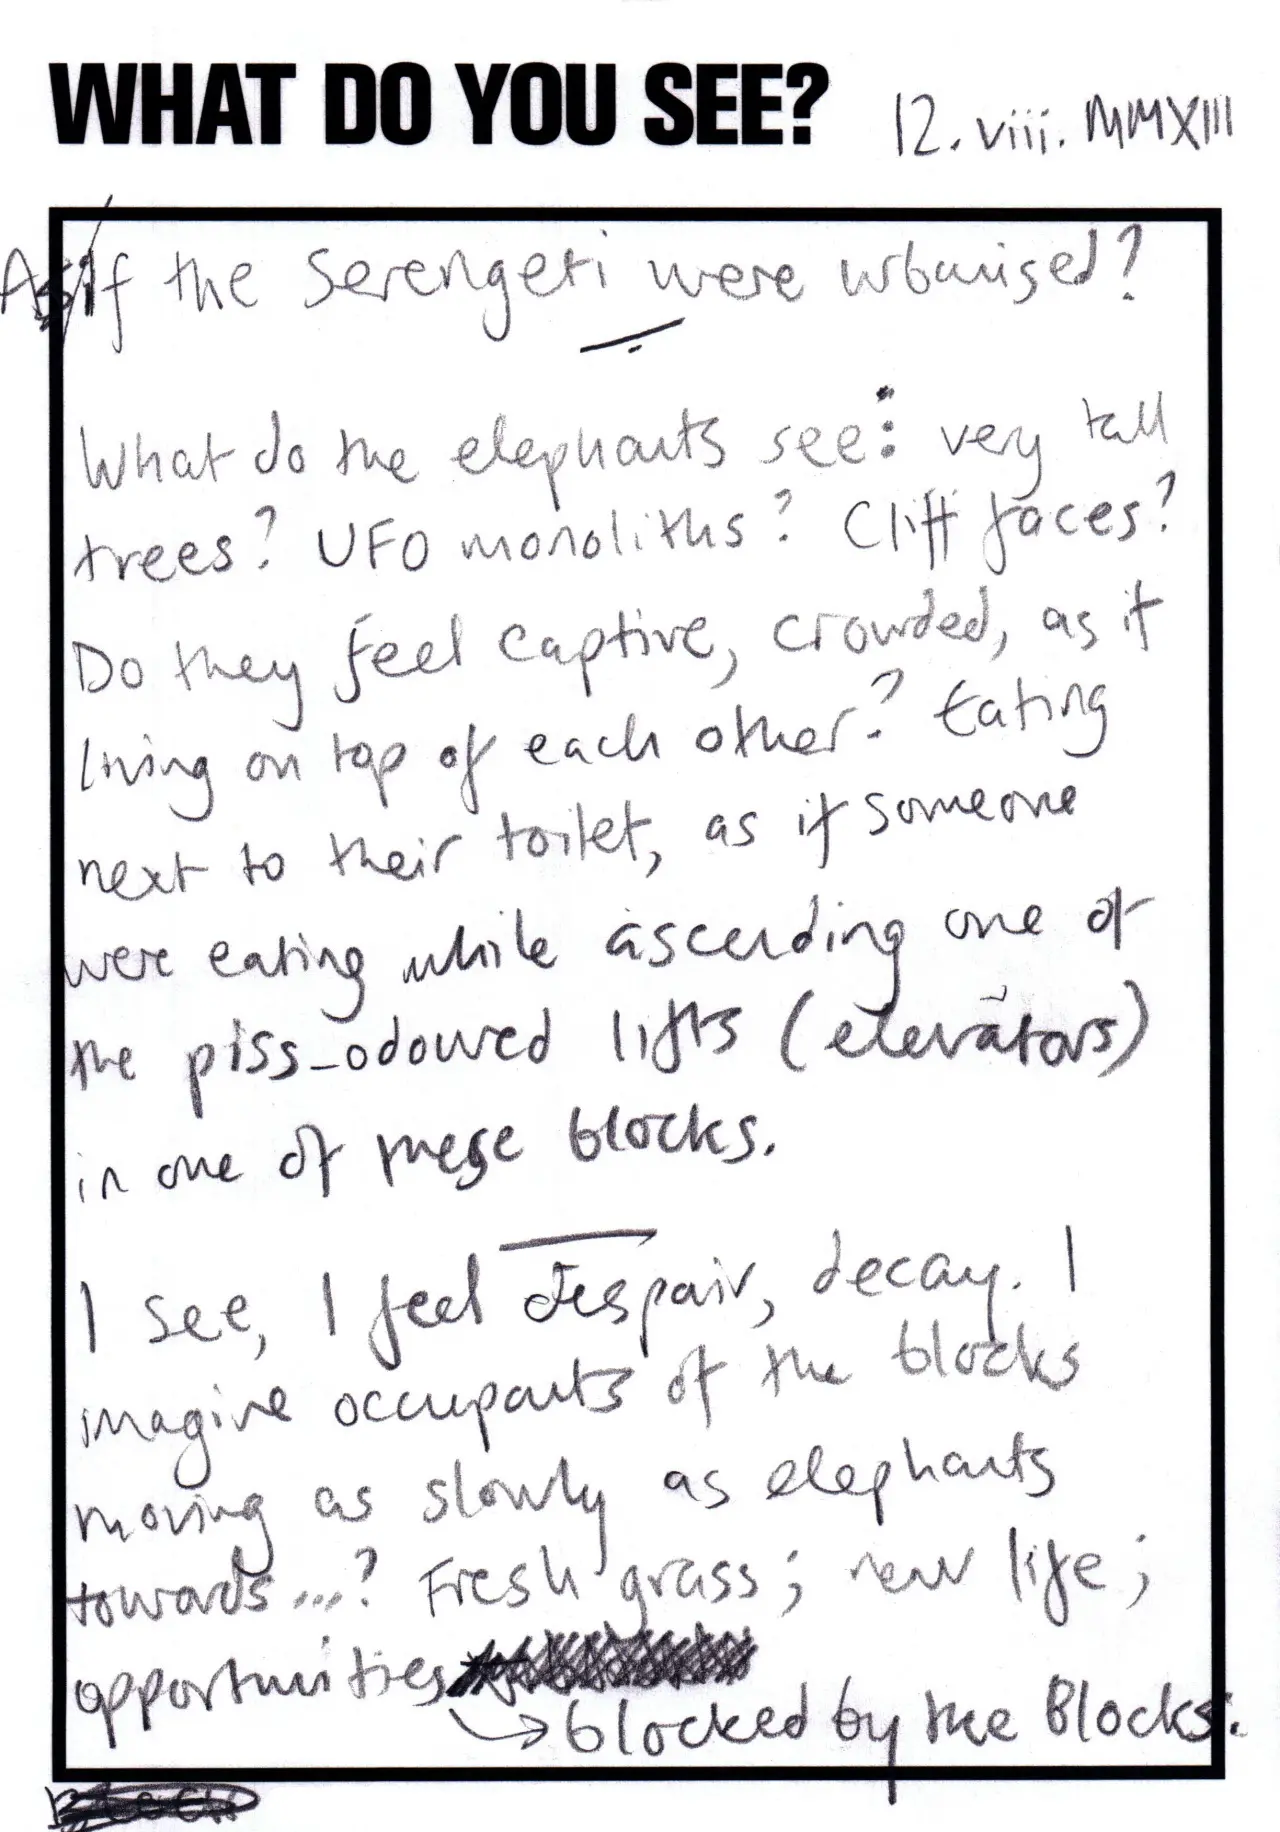 WHAT DO YOU SEE? 12.viii.MMXIII
As if the Serengeti were urbanised?
What do the elephants see: very tall
trees? UFO monoliths? Cliff faces?
Do they feel captive, crowded, as if
living on top of each other? Eating
next to their toilet, as if someone
were eating while ascending one of
the piss-odoured lifts (elevators)
in one of these blocks.
I see, I feel despair, decay. I
imagine occupants of the blocks
moving as slowly as elephants
towards...? Fresh grass; new life;
opportunities
blocked by the Blocks.